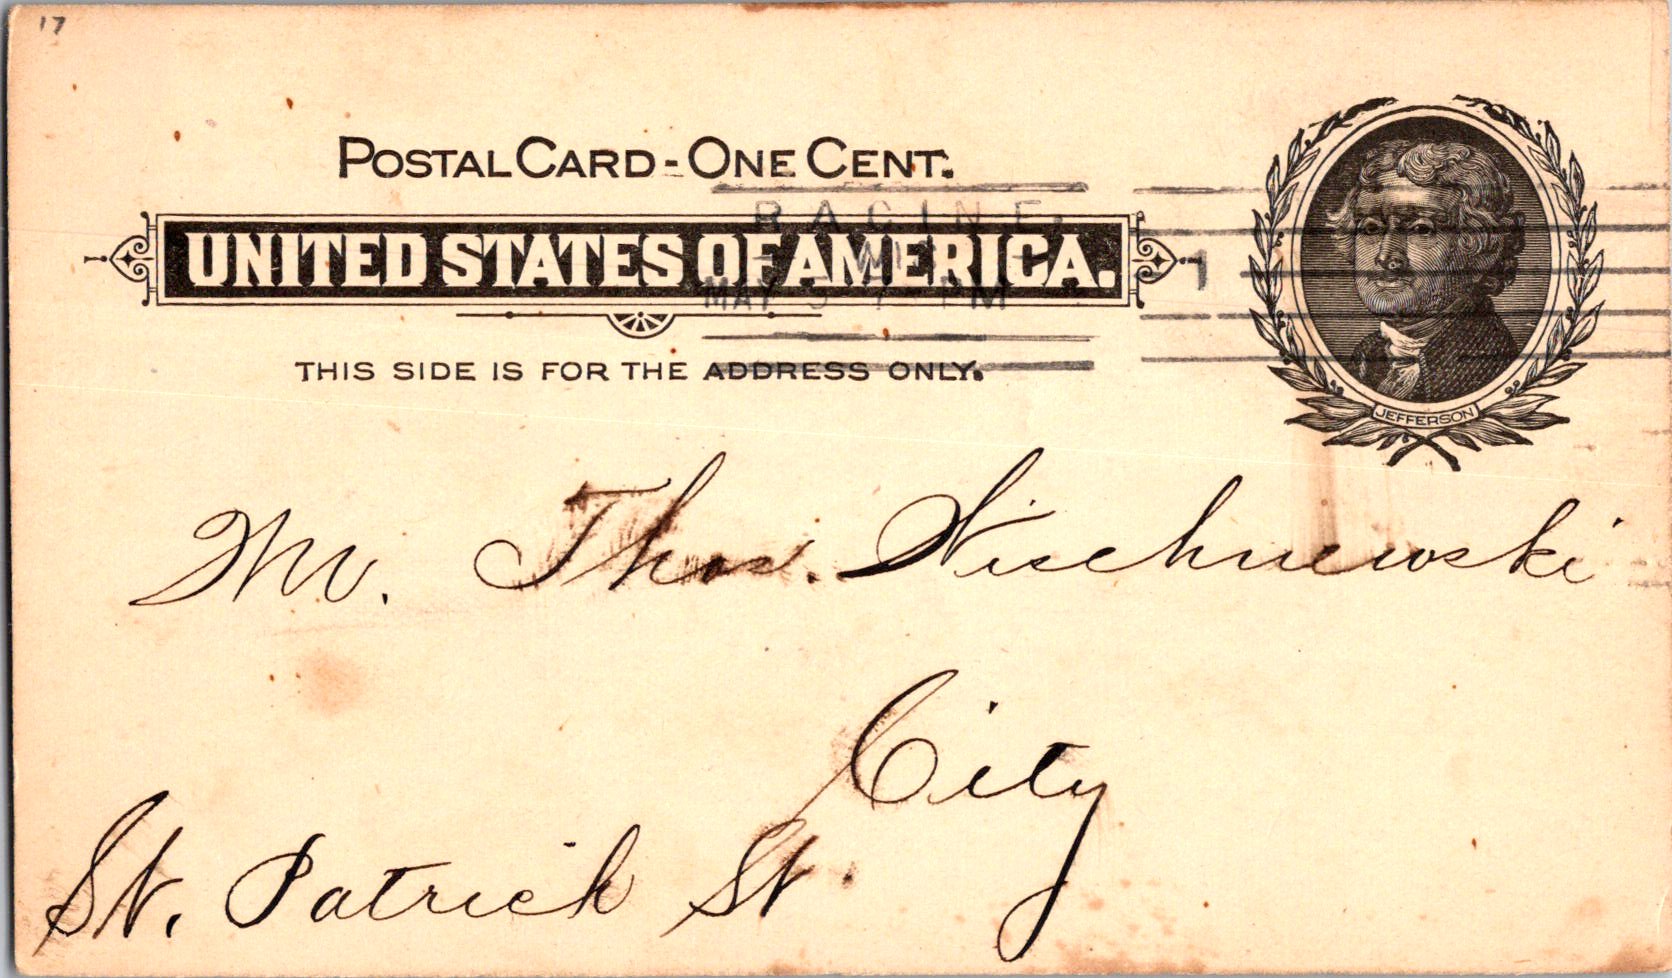 17
POSTAL CARD - ONE CENT.
RACINE,
UNITED STATES OF AMERICA.
WIS
1
MAY 5 7 - PM
THIS SIDE IS FOR THE ADDRESS ONLY.
JEFFERSON
Mr. Thos. Wischnewski
City
St. Patrick St.